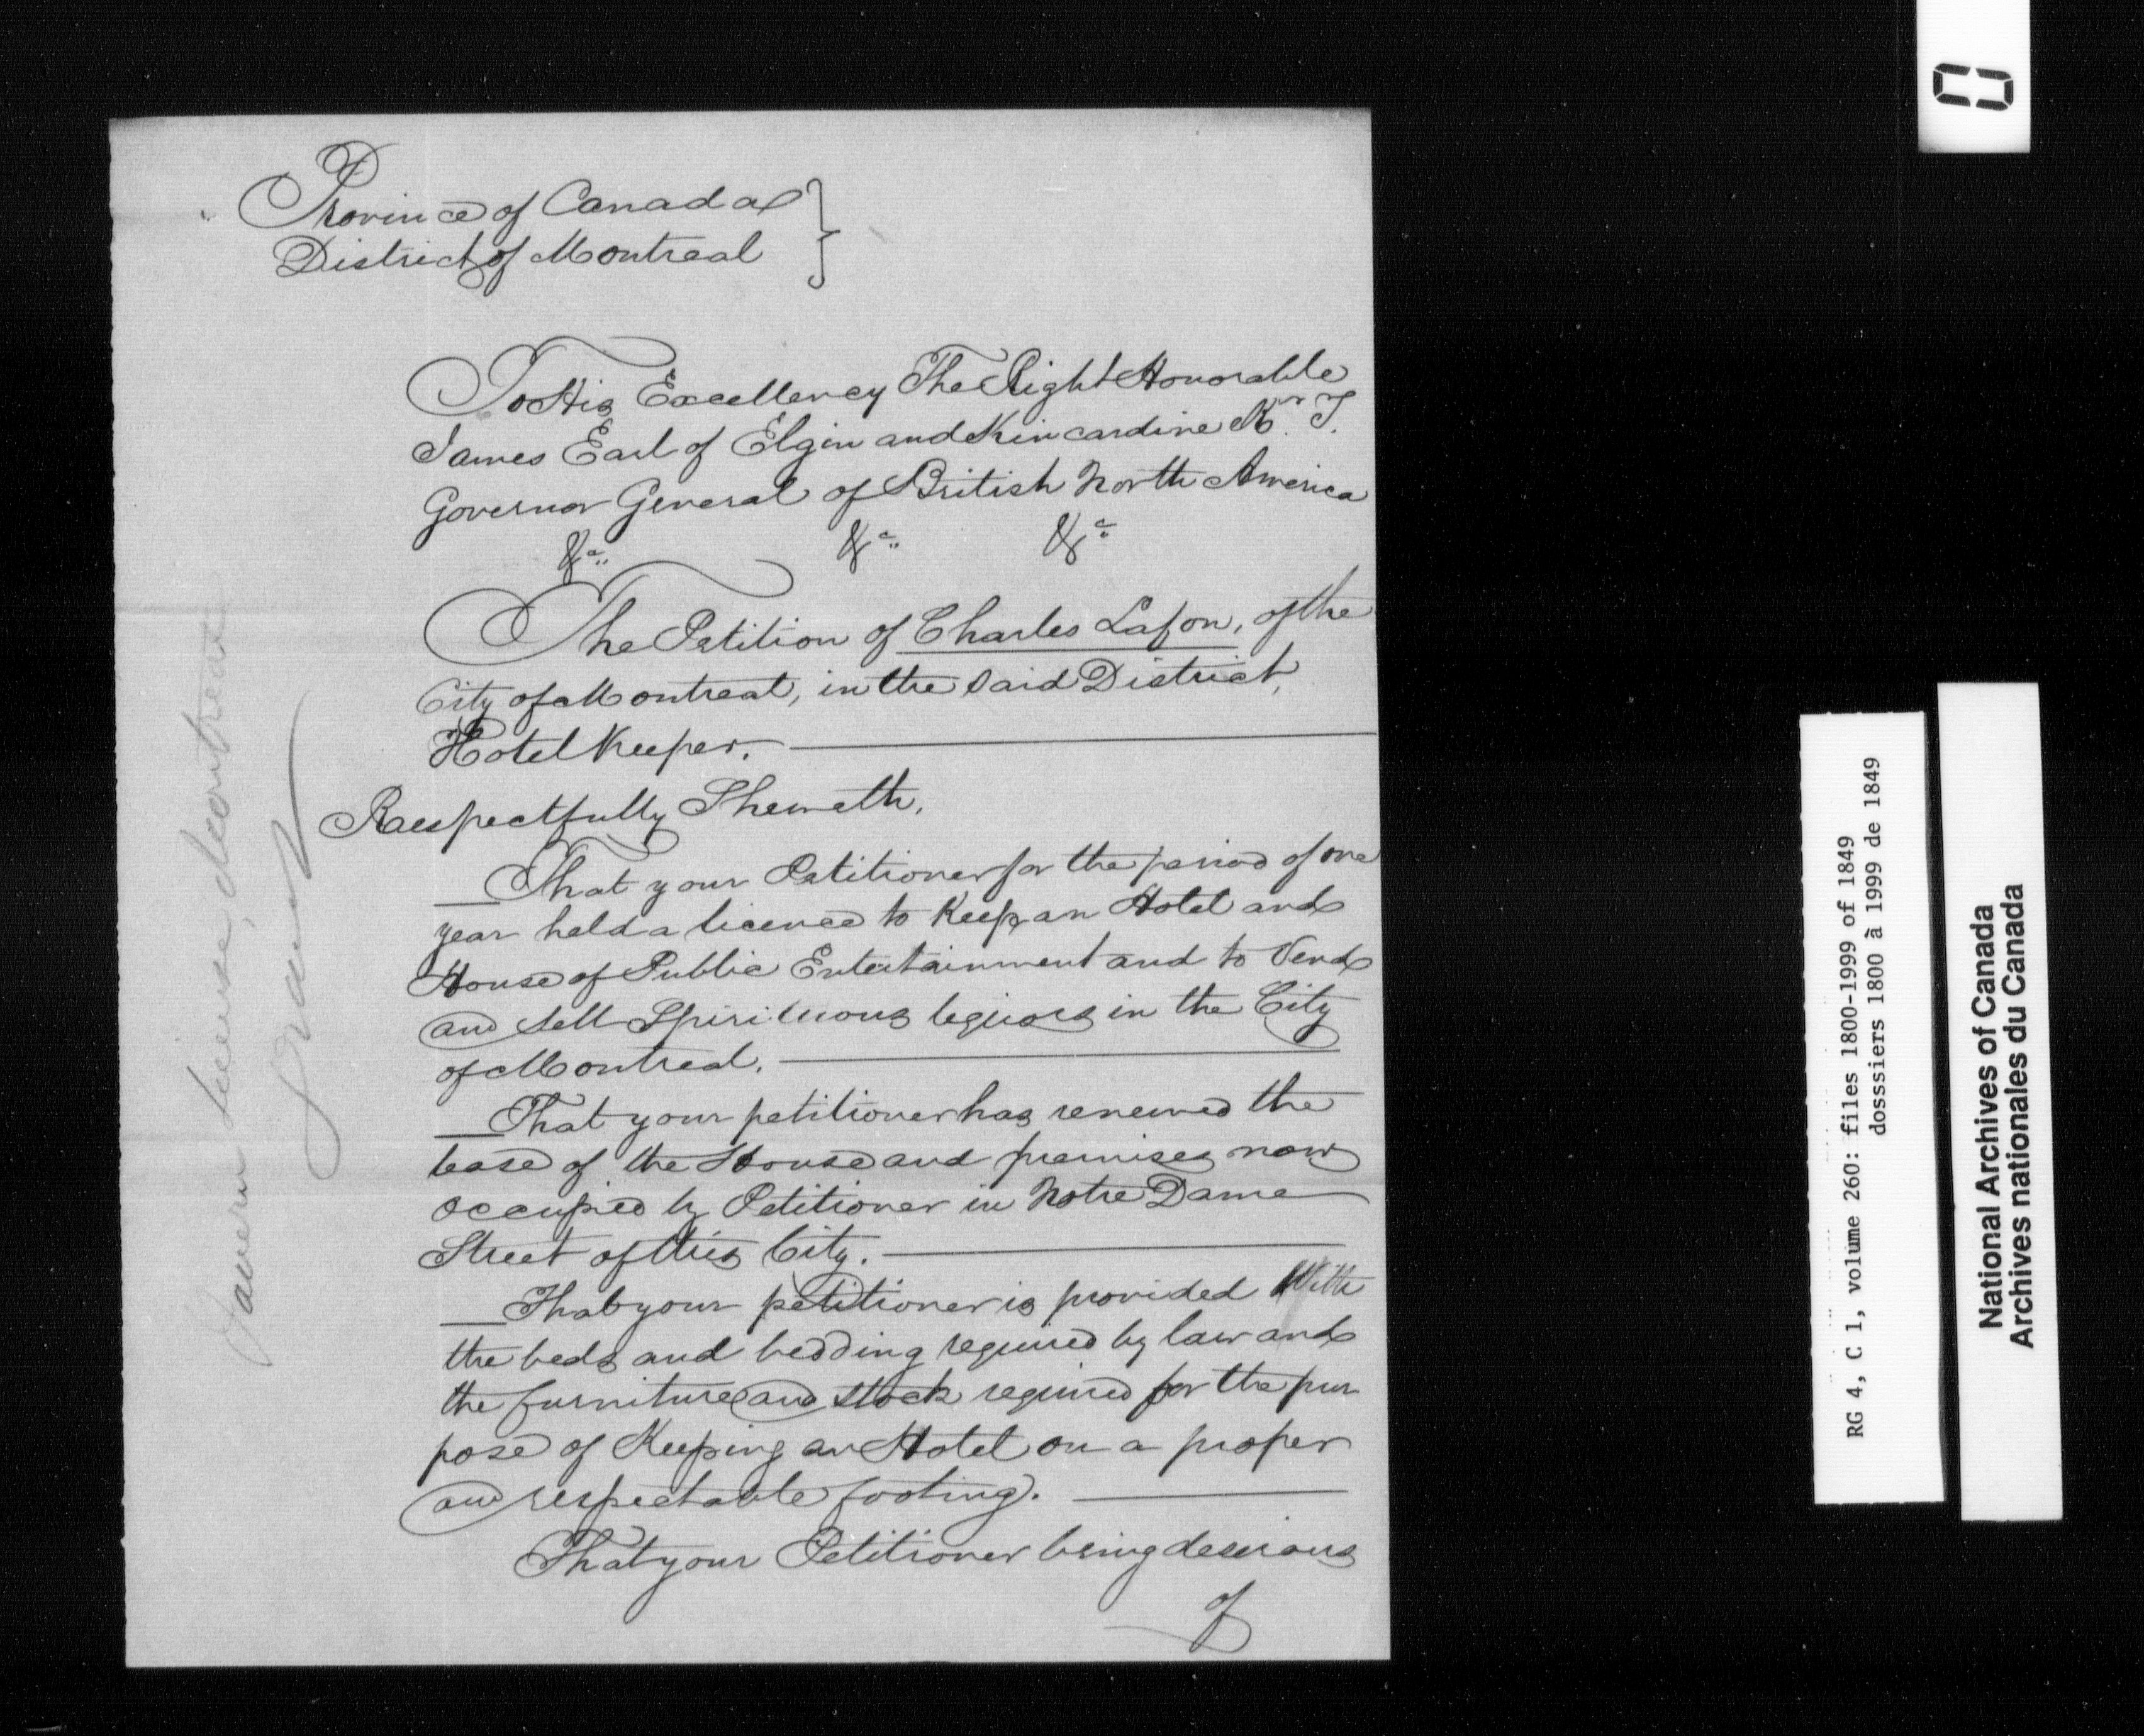 Province of Canada
District of Montreal
To His Excellency The Right Honorable
James Earl of Elgin and Kincardine K. T.
Governor General of British North America
&c &c &c
The Petition of Charles Lafon, of the
City of Montreal, in the said District,
Hotel Keeper.
Respectfully Sheweth,
That your Petitioner for the period of one
year held a licence to Keep an Hotel and
House of Public Entertainment and to Vend
and sell Spirituous liquors in the City
of Montreal.
That your petitioner has renewed the
lease of the House and premises now
occupied by Petitioner in Notre Dame
Street of this City.
That your petitioner is provided With
the beds and bedding required by law and
the furniture and stock required for the pur
pose of Keeping an Hotel on a proper
and respectable footing.
That your Petitioner being desirous
of
Tavern License, Montreal
RG 4, C 1, volume 260: files 1800-1999 of 1849
dosssiers 1800 à 1999 de 1849
National Archives of Canada
Archives nationales du Canada